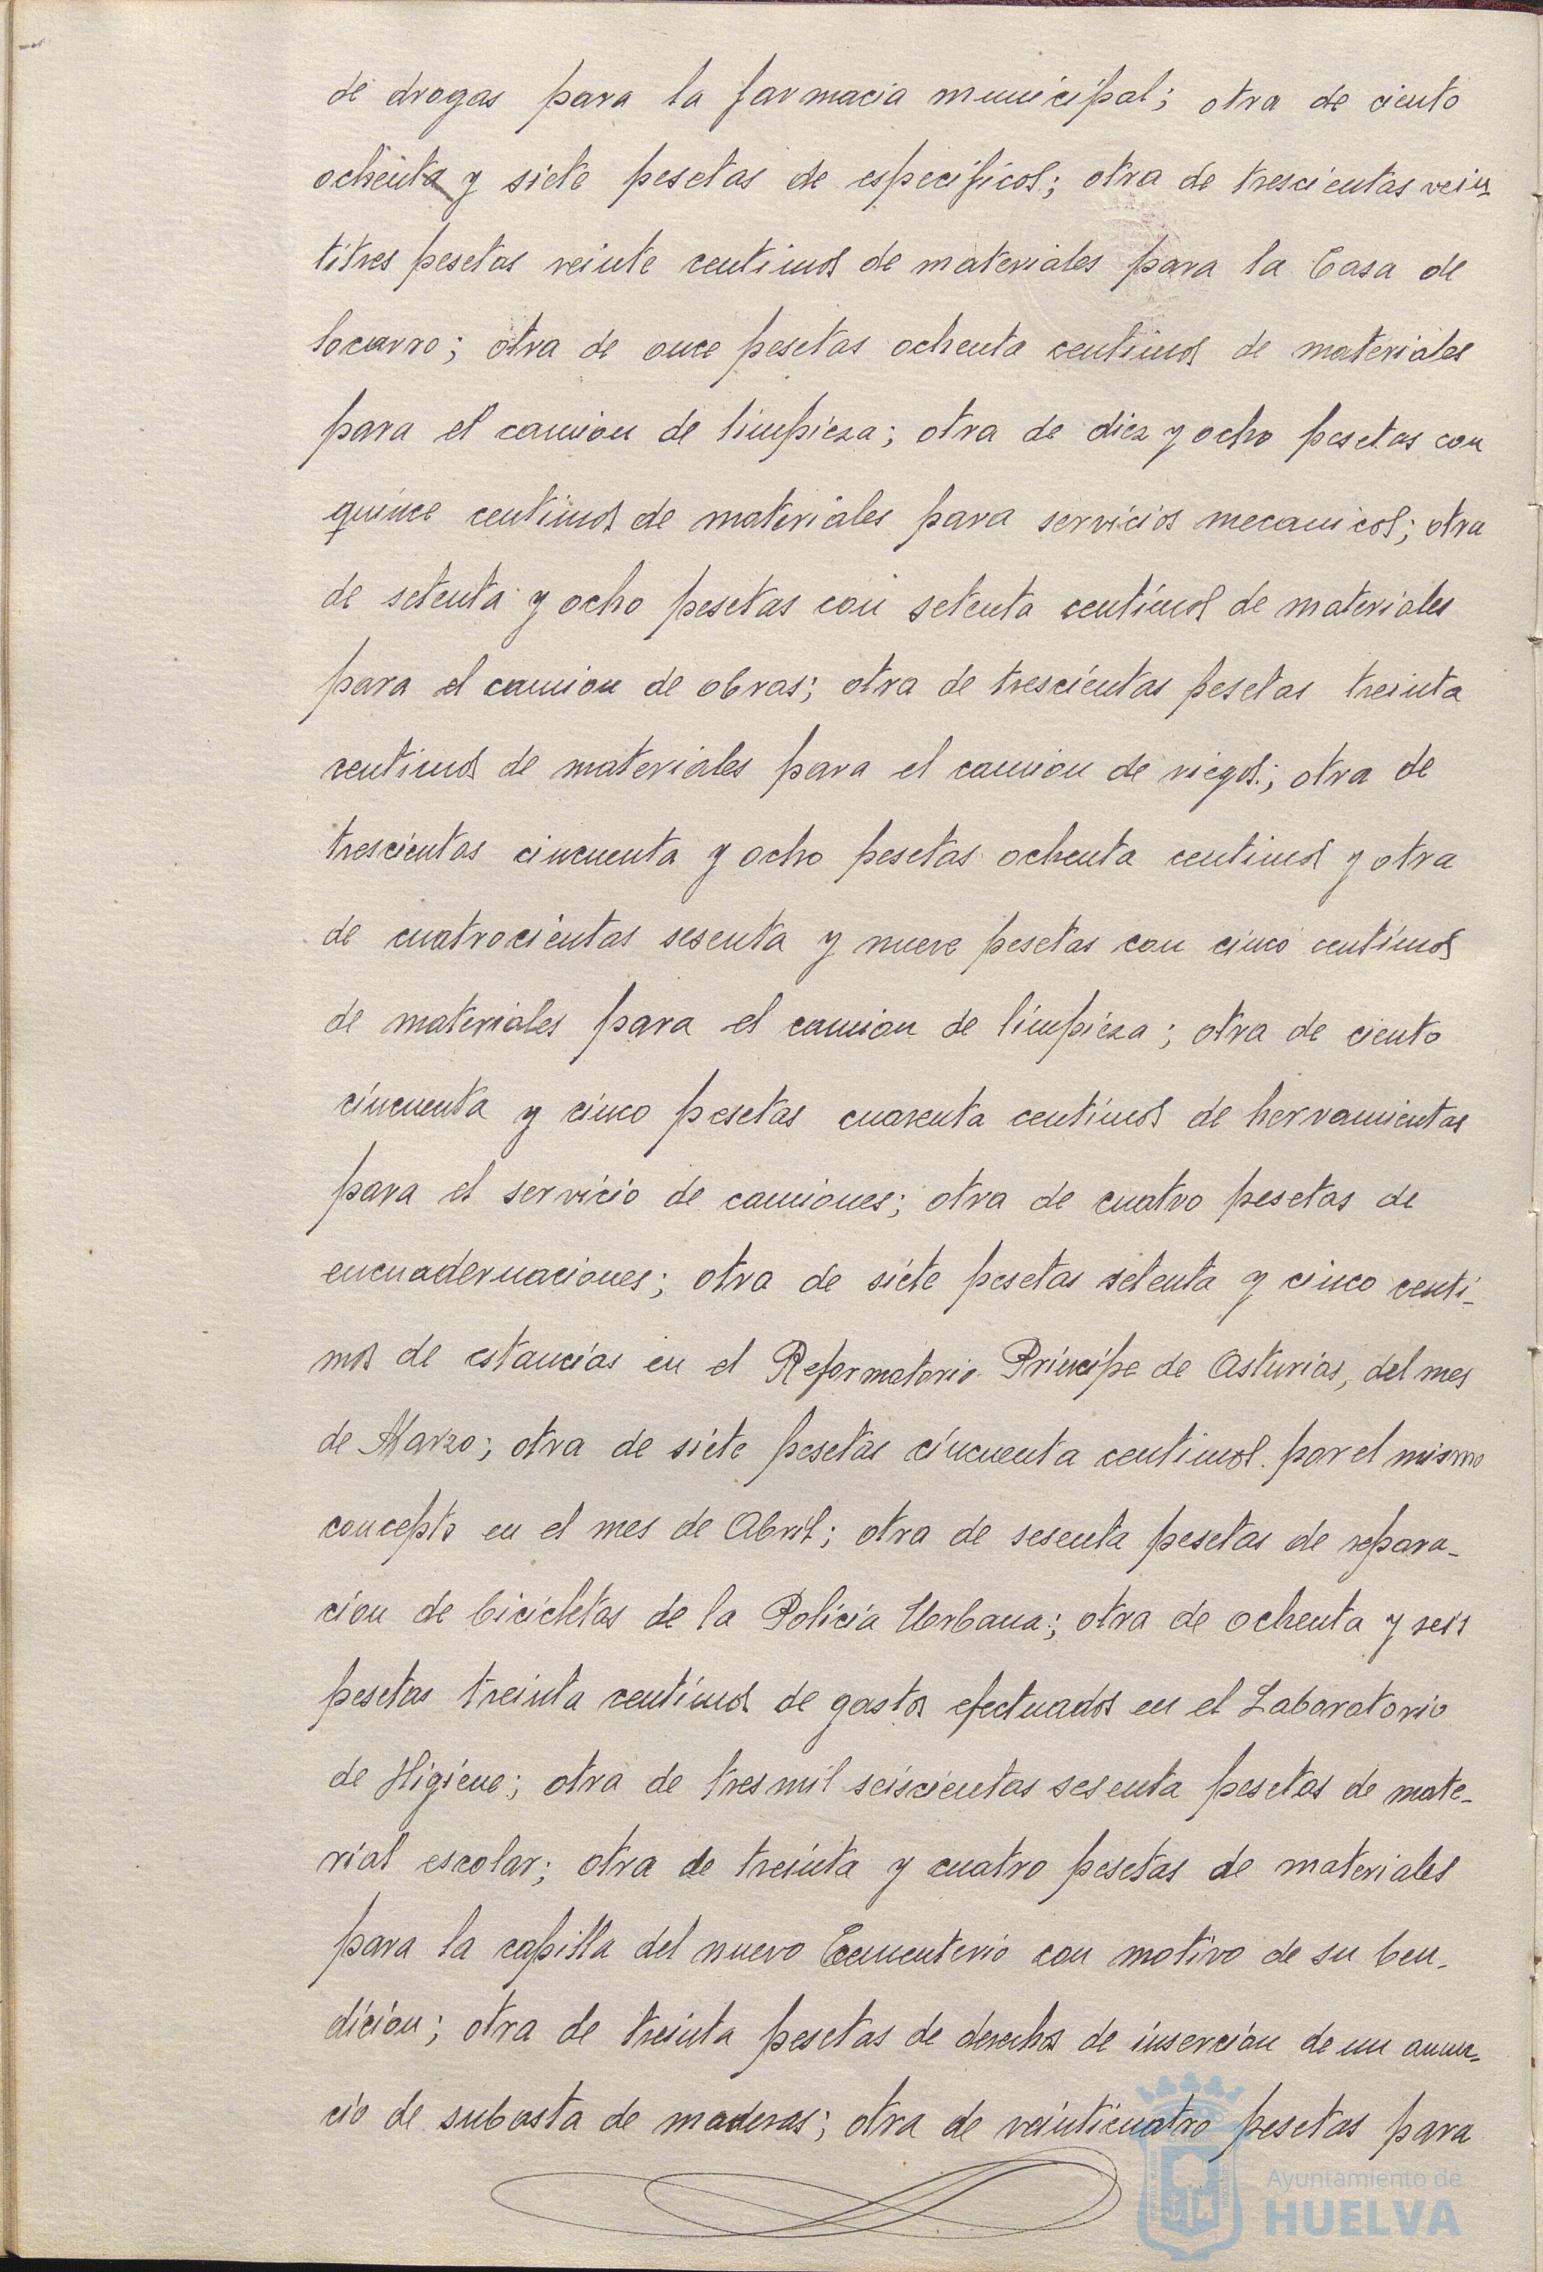 de drogas para la farmacia municipal; otra de ciento
ochenta y siete pesetas de especificos; otra de trescientas vein-
titres pesetas veinte centimos de materiales para la Casa de
Socorro; otra de once pesetas ochenta centimos de materiales
para el camion de limpieza; otra de diez y ocho pesetas con
quince centimos de materiales para servicios mecanicos; otra
de setenta y ocho pesetas con setenta centimos de materiales
para el camion de obras; otra de trescientas pesetas treinta
centimos de materiales para el camion de riegos; otra de
trescientas cincuenta y ocho pesetas ochenta centimos y otra
de cuatrocientas sesenta y nueve pesetas con cinco centimos
de materiales para el camion de limpieza; otra de ciento
cincuenta y cinco pesetas cuarenta centimos de herramientas
para el servicio de camiones; otra de cuatro pesetas de
encuadernaciones; otra de siete pesetas setenta y cinco centi-
mos de estancias en el Reformatorio Principe de Asturias, del mes
de Marzo; otra de siete pesetas cincuenta centimos por el mismo
concepto en el mes de Abril; otra de sesenta pesetas de repara-
cion de bicicletas de la Policia Urbana; otra de ochenta y seis
pesetas treinta centimos de gastos efectuados en el Laboratorio
de Higiene; otra de tres mil seiscientas sesenta pesetas de mate-
rial escolar; otra de treinta y cuatro pesetas de materiales
para la capilla del nuevo Cementerio con motivo de su ben-
dicion; otra de treinta pesetas de derechos de insercion de un anun-
cio de subasta de maderas; otra de veinticuatro pesetas para
Ayuntamiento de
HUELVA